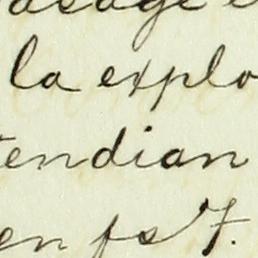 la explo
tendian
en fs 7.